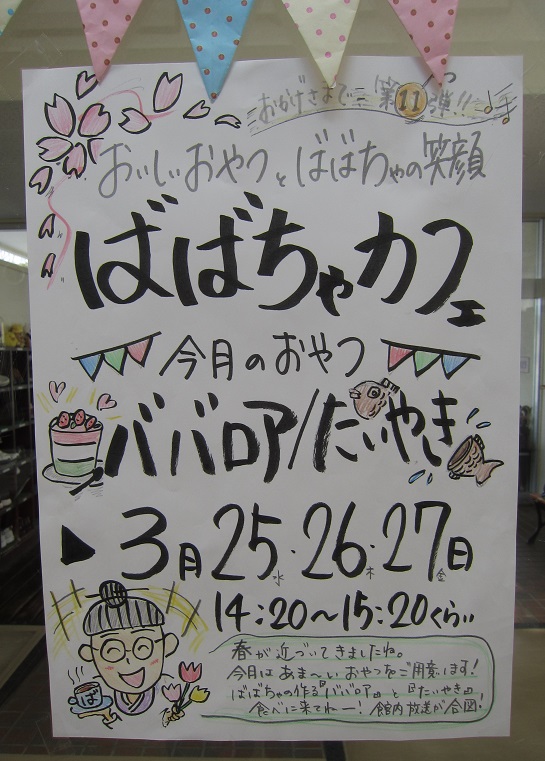 おかげさまで 第11弾!!
おいしいおやつとばばちゃの笑顔
ばばちゃカフェ
今月のおやつ
ババロア/たいやき
▶3月25水・26木・27金日
14:20〜15:20くらい
ば
春が近づいてきましたね。
今月はあま〜いおやつをご用意します!
ばばちゃの作る『ババロア』と『たいやき』
食べに来てねー! 館内放送が合図!